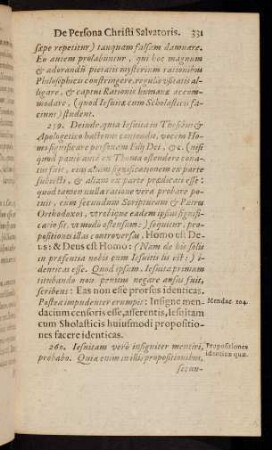 De Persona Christi Salvatoris. 331
sæpe repetitur) tanquam falsam damnare.
In autem prolabuntur, qui hoc magnum
& adorandũ pietatis mysterium rationibus
Philosophicis constringere, regulis usitatis alligare,
& captui Rationis humanæ accommodare,
(quod Jesuitæ cum Scholasticis faciunt)
student.
259. Deinde, quia Jesuita in Thesibus &
Apologetico hactenus contendit, vocem Homo
significare personam Filij Dei, &c. (nisi
quod ex Thoma ostendere conatus
fuit, eam significationem ex parte
subjecti, & aliam ex parte prædicati esse:
quod tamen nulla ratione vera probare potuit,
cum secundum Scripturam & Patres
Orthodoxos, utrobique eadem ipsius significatio
sit, ut modò ostensum:) sequitur,
propositiones istas controversas, Homo est Deus:
& Deus est Homo: (Nam de his solis
in præsentia nobis cum Jesuitis lis est:)
identicas esse. Quod ipsum, Jesuita primùm
titubando non penitus negare ausus fuit,
scribens: Eas non esse prorsus identicas.
Postea impudenter erumpit: Insigne mendacium
censoris esse, asserentis, Jesuitam
cum Sholasticis huiusmodi propositiones
facere identicas.
Mendac. 104.
260. Jesuitam verò insigniter mentiri,
probabo. Quia enim in illis propositionibus,
Propositiones
identicæ quæ.
secun-